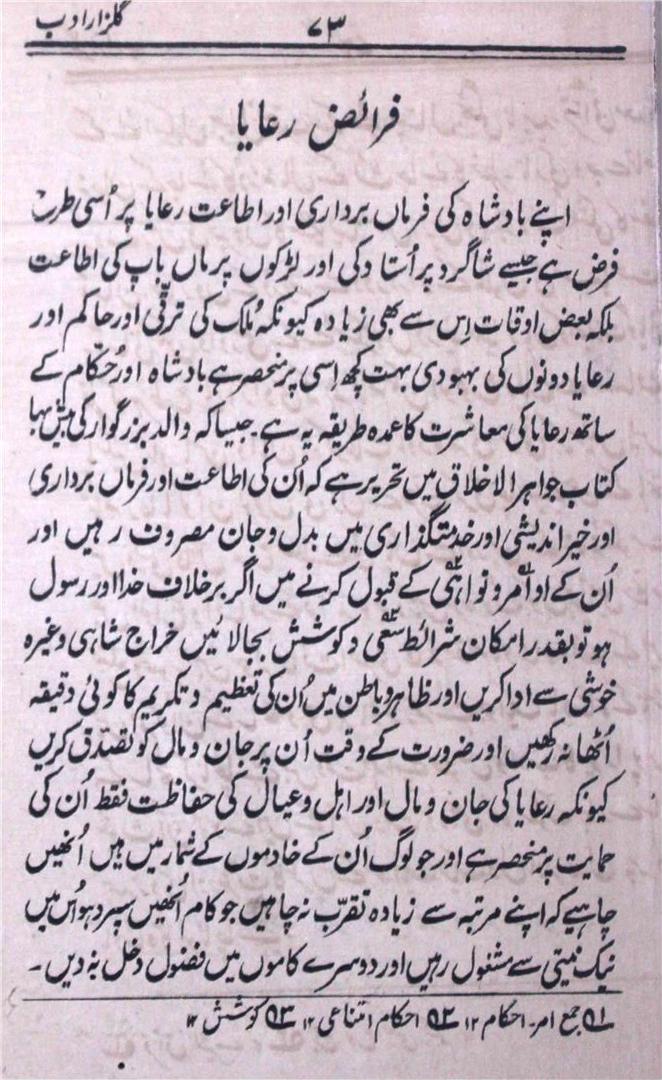 گلزار ادب
۷۳
فرائض رعایا
اپنے بادشاہ کی فرماں برداری اور اطاعت رعایا پر اُسی طرح
فرض ہے جیسے شاگرد پر اُستاد کی اور لڑکوں پر ماں باپ کی اطاعت
بلکہ بعض اوقات اِس سے بھی زیادہ کیونکہ مُلک کی ترقّی اور حاکم اور
رعایا دونوں کی بہبودی بہت کچھ اِسی پر منحصر ہے بادشاہ اور حُکّام کے
ساتھ رعایا کی معاشرت کا عمدہ طریقہ یہ ہے۔ جیسا کہ والد بزرگوار کی بیش بہا
کتاب جواہر الاخلاق میں تحریر ہے کہ اُن کی اطاعت اور فرماں برداری
اور خیر اندیشی اور خدمتگذاری میں بدل و جان مصروف رہیں اور
اُن کے اوامر و نواہی کے قبول کرنے میں اگر برخلاف خدا اور رسول
ہو تو بقدر امکان شرائط سعی و کوشش بجا لائیں خراج شاہی وغیرہ
خوشی سے ادا کریں اور ظاہر و باطن میں اُن کی تعظیم و تکریم کا کوئی دقیقہ
اُٹھا نہ رکھیں اور ضرورت کے وقت اُن پر جان و مال کو تصدّق کریں
کیونکہ رعایا کی جان و مال اور اہل و عیال کی حفاظت فقط اُن کی
حمایت پر منحصر ہے اور جو لوگ اُن کے خادموں کے شمار میں ہیں اُنھیں
چاہیے کہ اپنے مرتبہ سے زیادہ تقرّب نہ چاہیں جو کام اُنھیں سپرد ہو اُس میں
نیک نیتی سے مشغول رہیں اور دوسرے کاموں میں فضول دخل نہ دیں۔
۵۱ جمع امر۔ احکام ۱۲ ۵۲ احکام امتناعی ۱۲ ۵۳ کوشش ۱۲